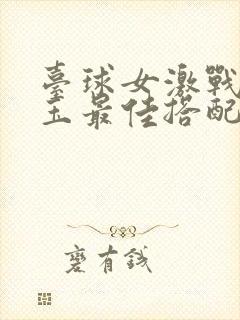 臺球女激戰
王最佳搭配
麼有錢